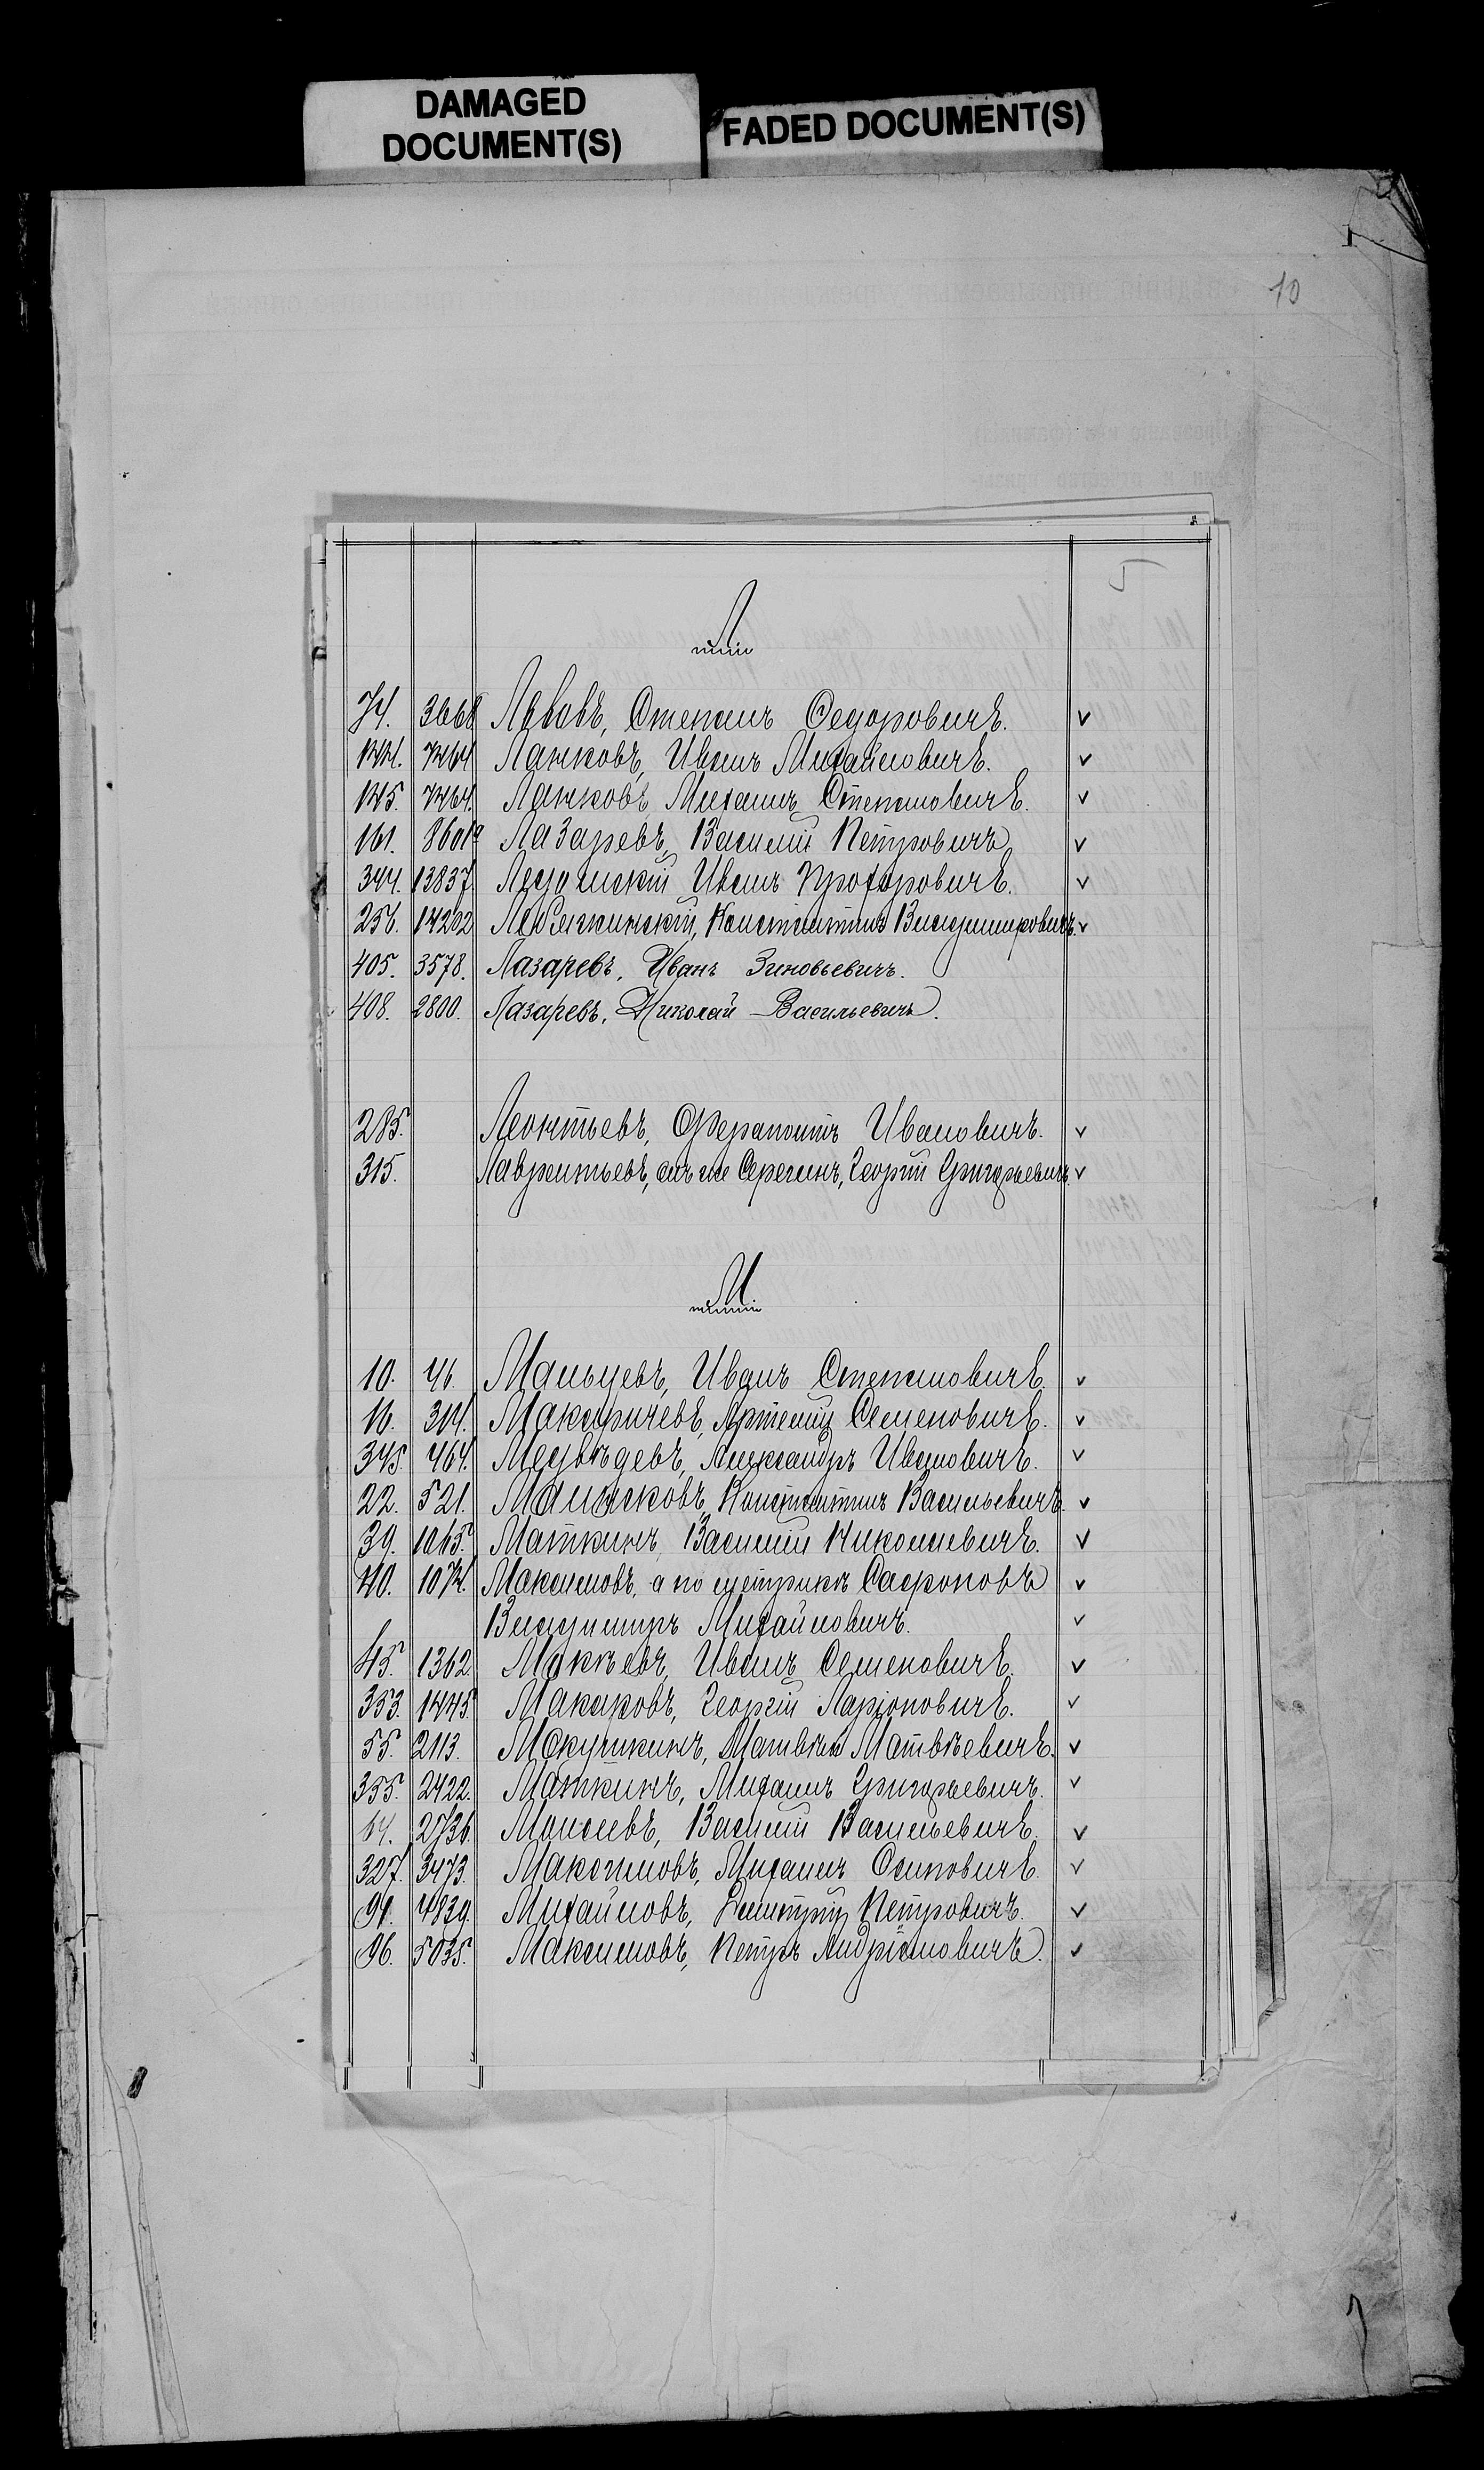 DAMAGED
DOCUMENT(S)
FADED DOCUMENT(S)
10
5
Л
74. 3668 Львовъ, Степанъ Федоровичъ. v
144. 7464 Ланковъ, Иванъ Михайловичъ. v
145. 7464. Ланковъ Михаилъ Степановичъ. v
161. 8601а Лазаревъ, Василій Петровичъ v
344. 13837 Иванъ Прохоровичъ. v
256. 14202 Константинъ Владимировичъ. v
405. 3578. Лазаревъ, Иванъ Зиновьевичъ.
408. 2800. Лазаревъ, Николай Васильевичъ.
285. Леонтьевъ, Ферапонтъ Ивановичъ. v
315. Лаврентьевъ, онъ же Серегинъ, Георгій Григорьевичъ. v
М
10. 46. Мальцевъ, Иванъ Степановичъ. v
16. 314. Макаричевъ, Артемій Семеновичъ. v
345. 464. Медвѣдевъ, Александръ Ивановичъ. v
22. 521. Константинъ Васильевичъ. v
39. 1065. Маткинъ, Василій Николаевичъ. v
40. 1074. Максимовъ, а по метрикѣ Сафроновъ v
Владимиръ Михайловичъ. v
45. 1362 Макѣевъ, Иванъ Семеновичъ. v
353. 1445. Макаровъ, Георгій Ларіоновичъ. v
55. 2113. Макушкинъ, Матвѣй Матвѣевичъ. v
355. 2422. Маткинъ, Михаилъ Григорьевичъ. v
64. 2736. Моисеевъ, Василій Васильевичъ. v
327. 3473. Максимовъ, Михаилъ Осиповичъ. v
91. 4839. Михайловъ, Дмитрій Петровичъ. v
96. 5035. Максимовъ, Петръ Андріановичъ. v